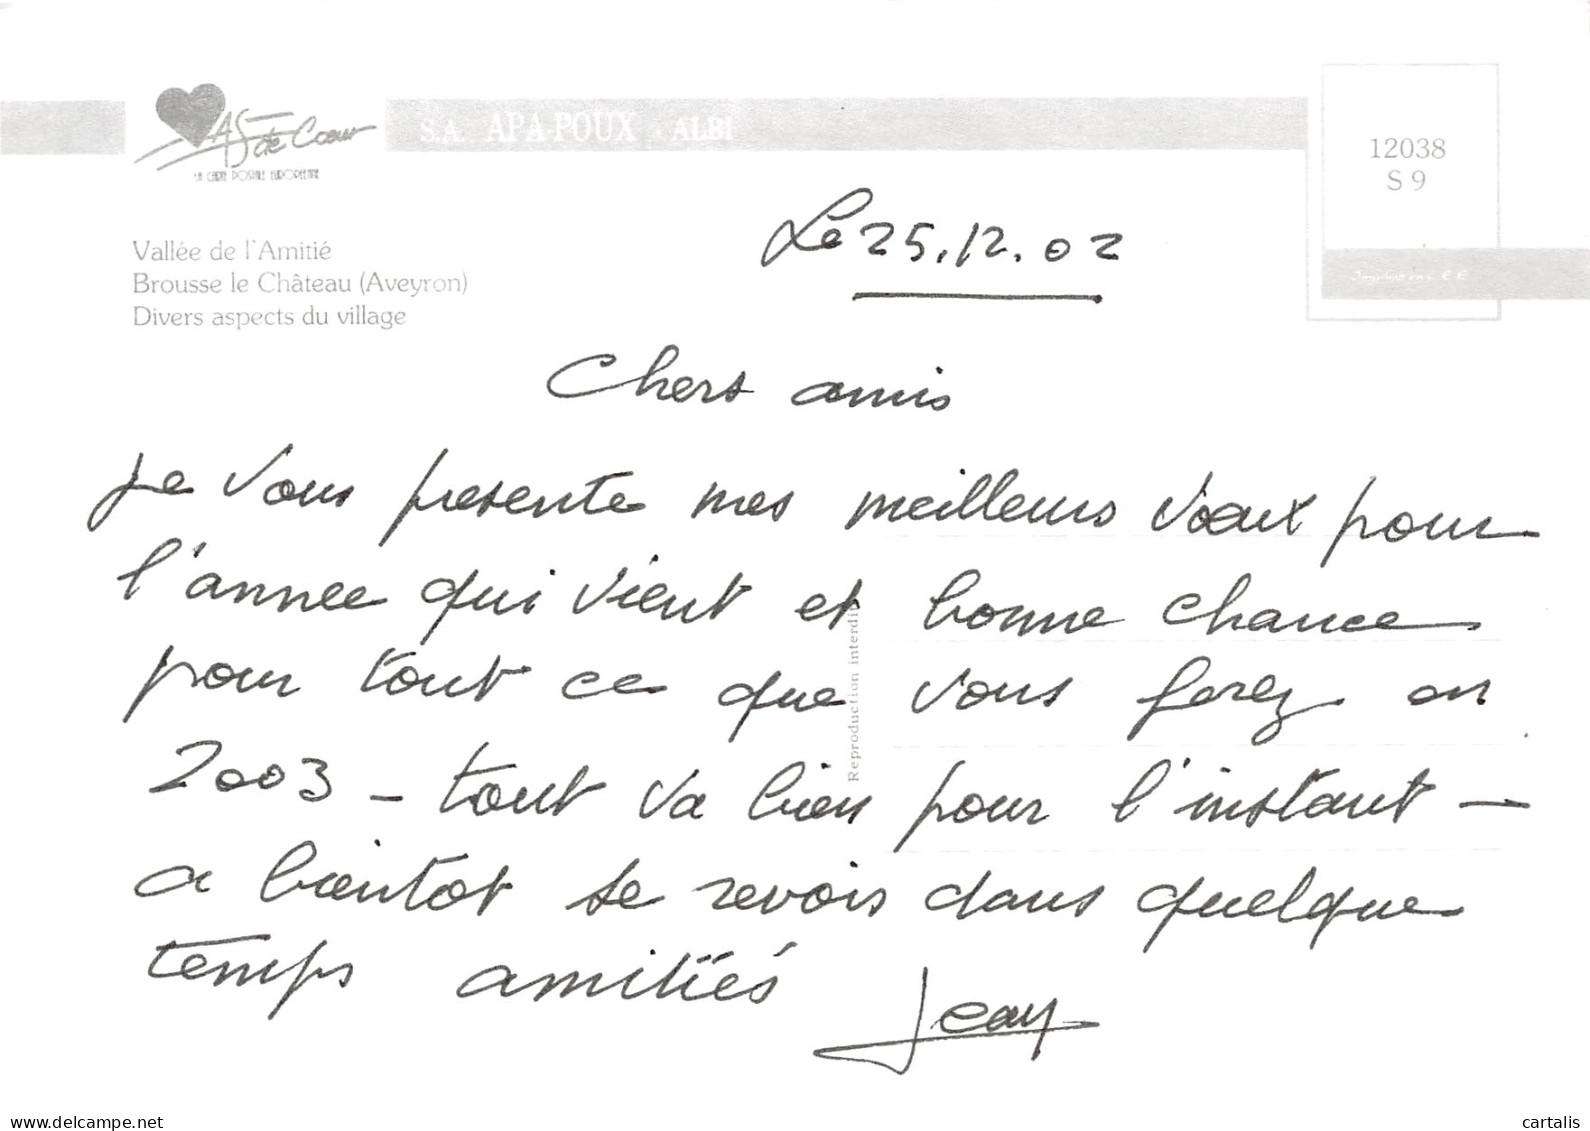 AS de Coeur
LA CARTE POSTALE EUROPEENNE
S.A. APA-POUX - ALBI
12038
S 9
Vallée de l'Amitié
Brousse le Château (Aveyron)
Divers aspects du village
Imprimé en C.E.E.
Le 25.12.02
Chers amis
je vous presente mes meilleurs voeux pour
l'annee qui vient et bonne chance
pour tout ce que vous ferez en
2003 - tout va bien pour l'instant -
a bientot se revois dans quelque
temps amitiés
Jean
Reproduction interdite
delcampe.net
cartalis